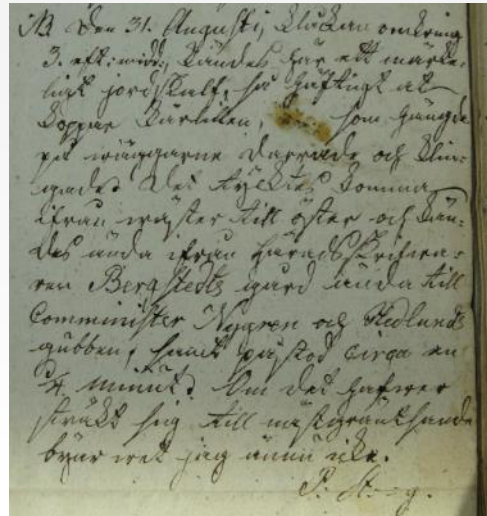 NB Den 31. Augusti, klåckan omkring
3. eft: midd:, kändes här ett märke-
ligt jordskalf, så häftigt at
koppar kärlillen, som hängde
på wäggarne darrade och klin-
gade. Det tycktes komma
ifrån wäster till öster och kän-
des ända ifrån Häradsskrifwa-
ren Bergstedts gård ända till
Comminister Nygren och Hedlunds
gubben, samt påstod circa en
1/4 minut. Om det hafwer
sträkt sig till näst gräntsande
byar wet jag ännu icke.
P.